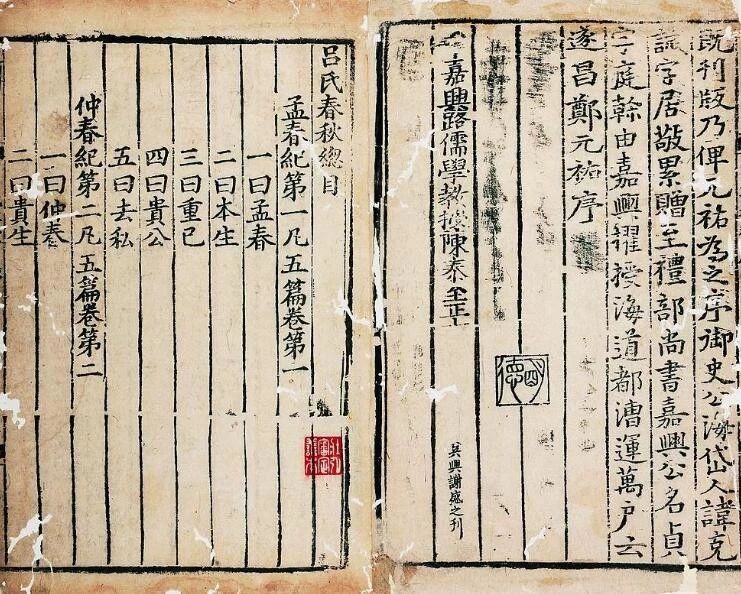 既刊版乃俾元祐為之序御史公海岱人諱克
誠字居敬累贈至禮部尚書嘉興公名貞
字庭幹由嘉興擢授海道都漕運萬戶云
遂昌鄭元祐序
嘉興路儒學教授陳泰至正十
吳興謝盛之刊
呂氏春秋總目
孟春紀第一凡五篇卷第一
一曰孟春
二曰本生
三曰重己
四曰貴公
五曰去私
仲春紀第二凡五篇卷第二
一曰仲春
二曰貴生